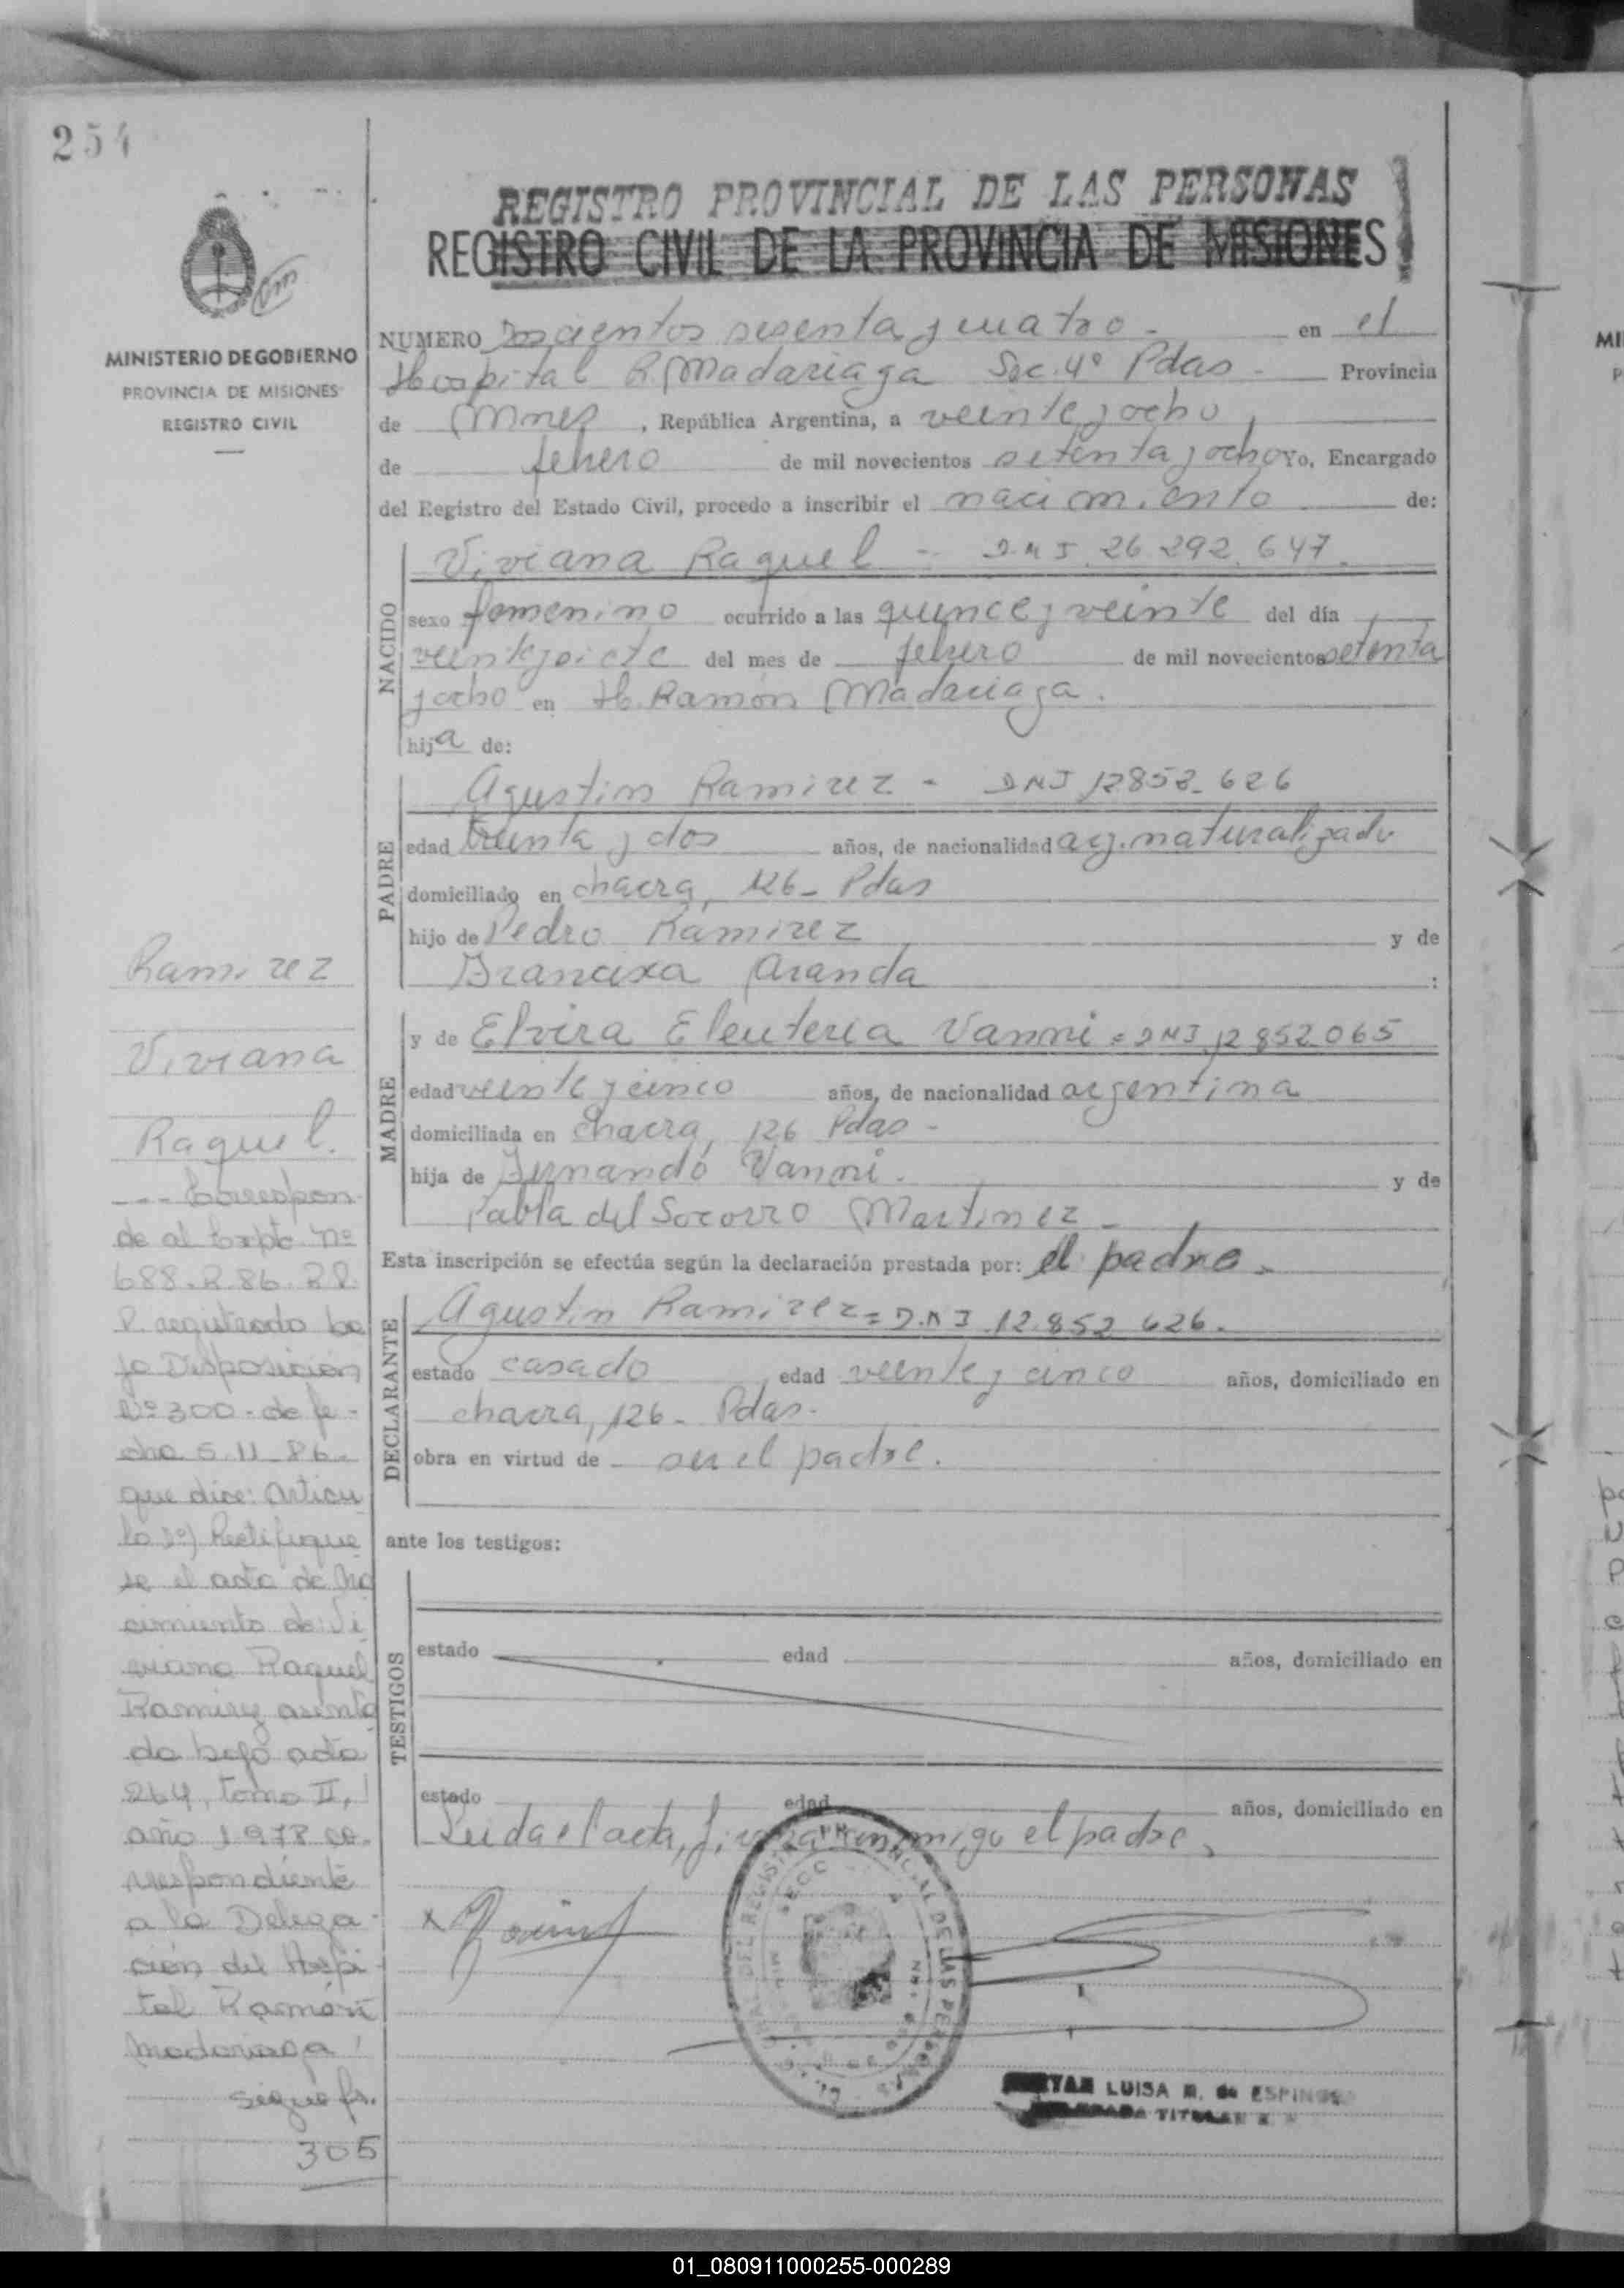 254
REGISTRO PROVINCIAL DE LAS PERSONAS
REGISTRO CIVIL DE LA PROVINCIA DE MISIONES
MINISTERIO DE GOBIERNO
PROVINCIA DE MISIONES
REGISTRO CIVIL
NUMERO Doscientos sesenta y cuatro - en el
Hospital R. Madariaga Sec. 4º Pdas - Provincia
de Mnes, República Argentina, a veinte y ocho
de febrero de mil novecientos setenta y ocho Yo, Encargado
del Registro del Estado Civil, procedo a inscribir el nacimiento de:
NACIDO
Viviana Raquel - D.N.I. 26.292.647.
sexo femenino ocurrido a las quince y veinte del día
veinte y siete del mes de febrero de mil novecientos setenta
y ocho en H. Ramón Madariaga.
hija de:
PADRE
Agustin Ramirez - DNI 12852.626
edad treinta y dos años, de nacionalidad arg. naturalizado
domiciliado en chacra, 126 - Pdas
hijo de Pedro Ramirez y de
Francisca Aranda :
MADRE
y de Elvira Eleuteria Vanni = DNI 12852065
edad veinte y cinco años, de nacionalidad argentina
domiciliada en chacra, 126 Pdas -
hija de Fernando Vanni. y de
Pabla del Socorro Martinez -
Esta inscripción se efectúa según la declaración prestada por: el padre.
DECLARANTE
Agustin Ramirez = D.N.I 12.852 626.
estado casado edad veinte y cinco años, domiciliado en
chacra, 126 - Pdas.
obra en virtud de ser el padre.
ante los testigos:
TESTIGOS
estado edad años, domiciliado en
estado edad años, domiciliado en
Leida el acta, firma conmigo el padre,
LUISA M. de ESPINOSA
TITULAR
Ramirez
Viviana
Raquel.
--- Correspon-
de al Expte. Nº
688.R.86.R.P.
P. registrado ba
jo Disposición
Nº 300 - de fe-
cha 5.11.86.
que dice: Articu
lo 1º) Rectifique
se el acta de Na
cimiento de Vi
viana Raquel
Ramirez asenta
da bajo acta
264, tomo II,
año 1978 co-
rrespondiente
a la Delega-
ción del Hospi-
tal Ramón
Madariaga
sigue fs.
305
01_080911000255-000289